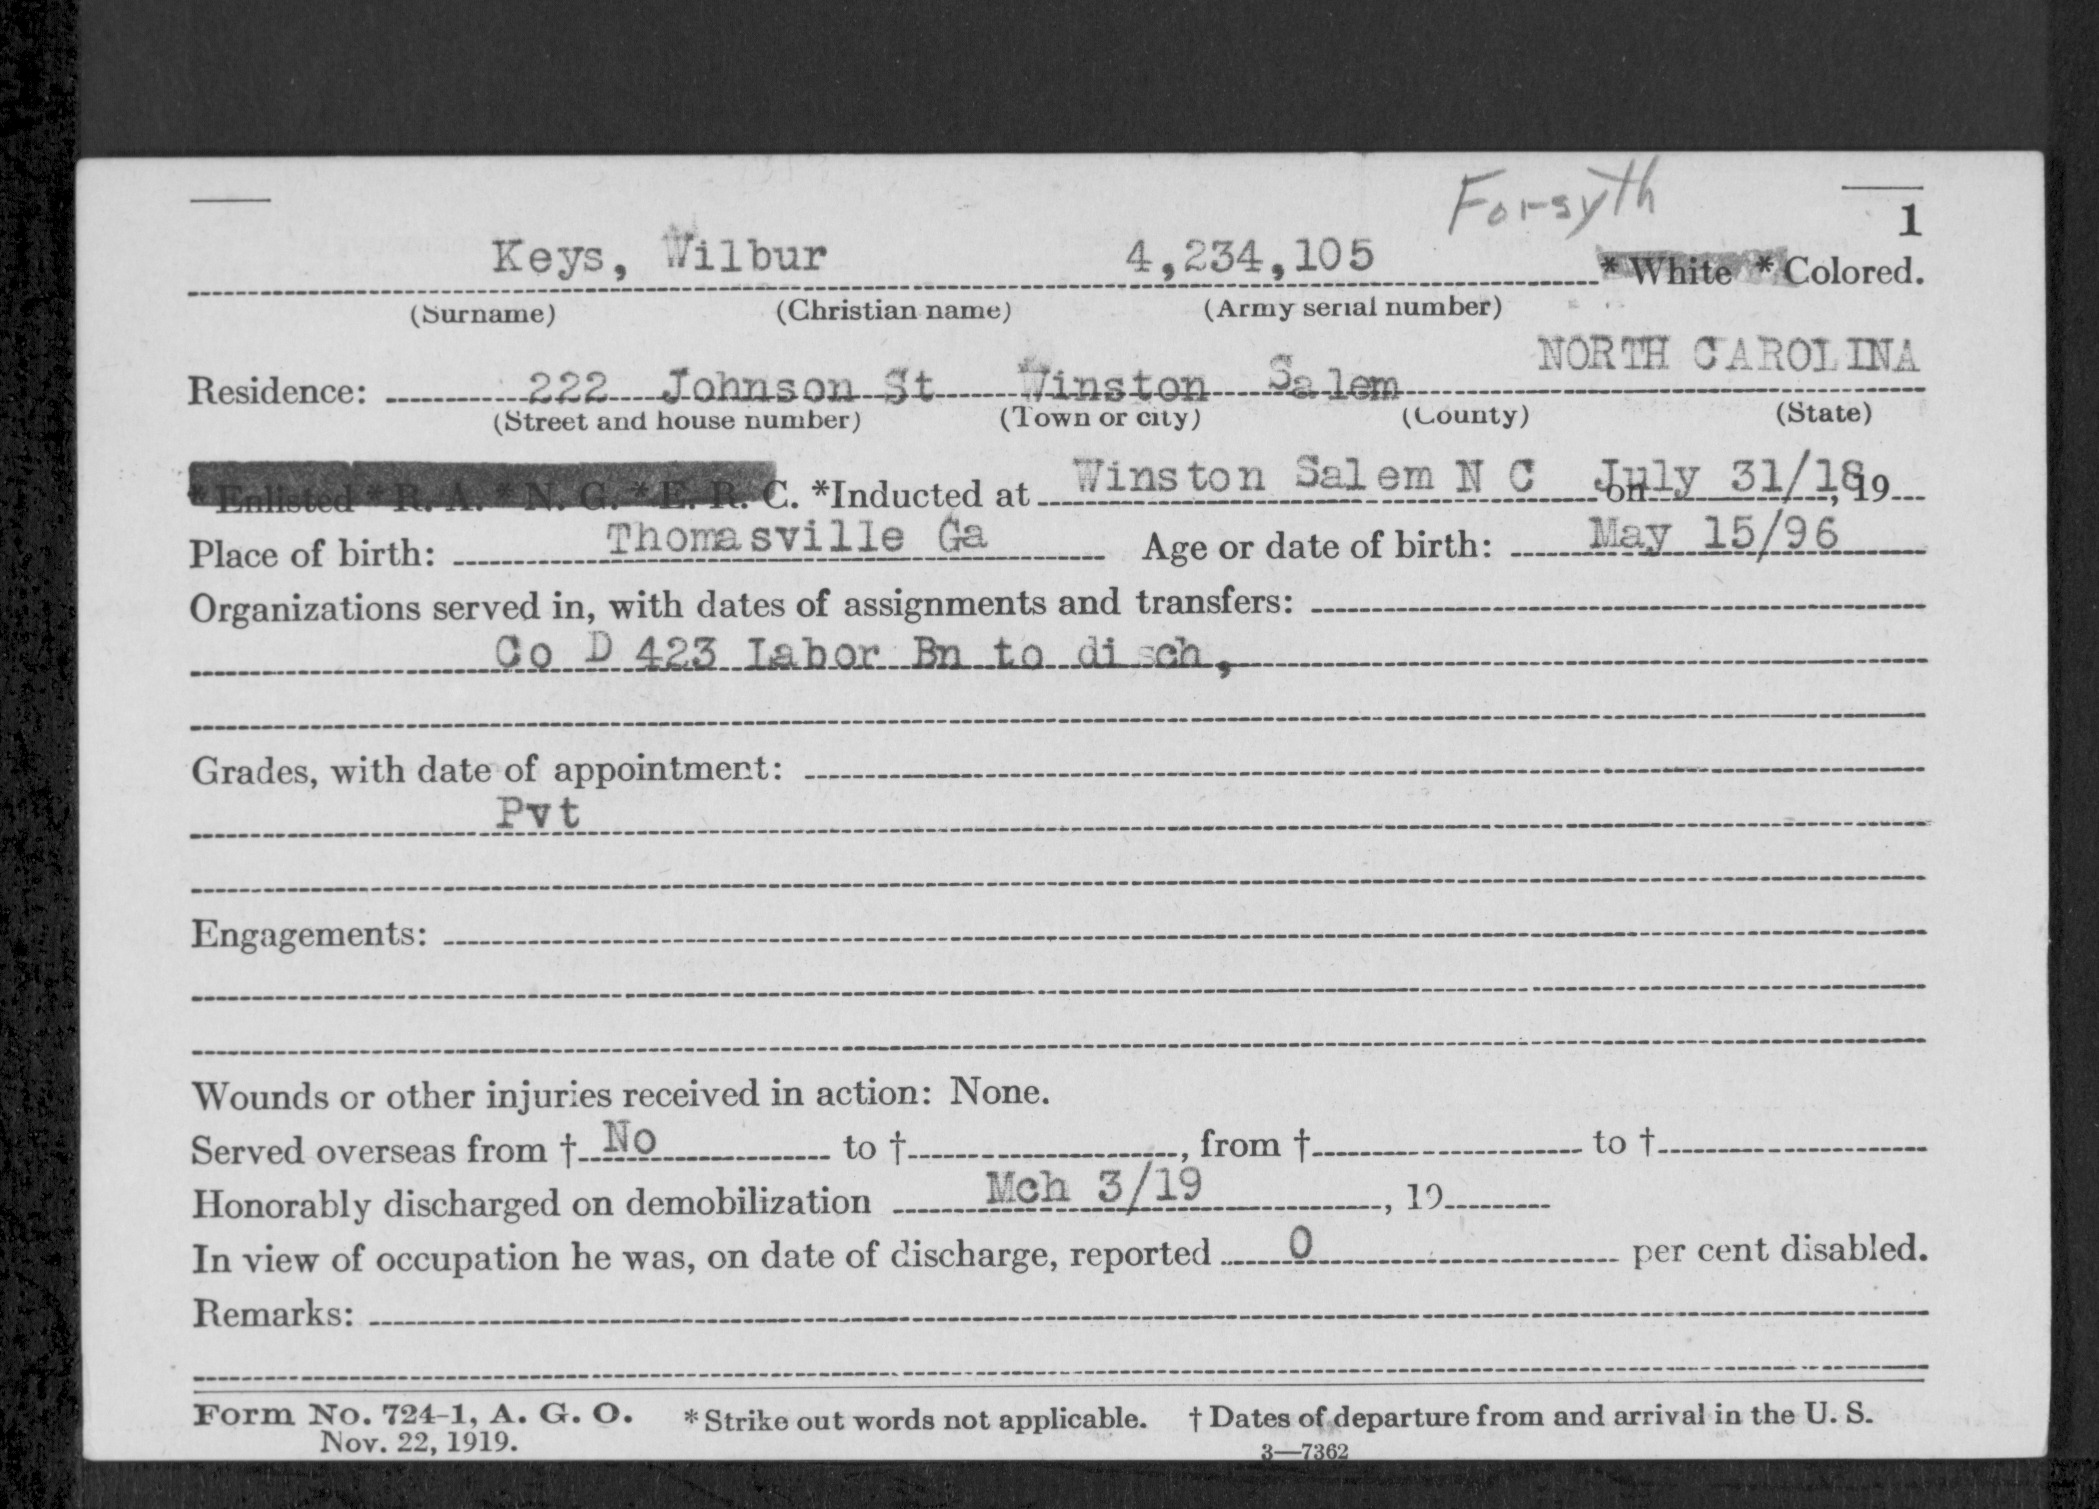 Forsyth
1
Keys, Wilbur 4,234,105 * White * Colored.
(Surname) (Christian name) (Army serial number)
NORTH CAROLINA
Residence: 222 Johnson St Winston Salem
(Street and house number) (Town or city) (County) (State)
* Enlisted * R. A. * N. G. * E. R. C. *Inducted at Winston Salem N C on July 31/18, 19
Place of birth: Thomasville Ga Age or date of birth: May 15/96
Organizations served in, with dates of assignments and transfers:
Co D 423 Labor Bn to disch,
Grades, with date of appointment:
Pvt
Engagements:
Wounds or other injuries received in action: None.
Served overseas from † No to †, from † to †
Honorably discharged on demobilization Mch 3/19, 19
In view of occupation he was, on date of discharge, reported 0 per cent disabled.
Remarks:
Form No. 724-1, A. G. O. * Strike out words not applicable. † Dates of departure from and arrival in the U. S.
Nov. 22, 1919. 3—7362